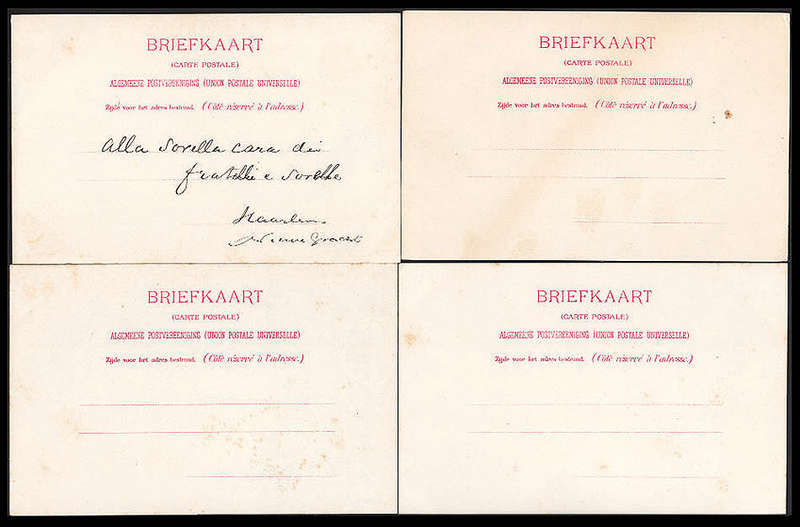 BRIEFKAART
(CARTE POSTALE)
ALGEMEENE POSTVEREENIGING (UNION POSTALE UNIVERSELLE)
Zijde voor het adres bestemd. (Côté réservé à l'adresse.)
Alla Sorella cara dei
fratelli e Sorelle
Haarlem
Nieuwe Gracht
BRIEFKAART
(CARTE POSTALE)
ALGEMEENE POSTVEREENIGING (UNION POSTALE UNIVERSELLE)
Zijde voor het adres bestemd. (Côté réservé à l'adresse.)
BRIEFKAART
(CARTE POSTALE)
ALGEMEENE POSTVEREENIGING (UNION POSTALE UNIVERSELLE)
Zijde voor het adres bestemd. (Côté réservé à l'adresse.)
BRIEFKAART
(CARTE POSTALE)
ALGEMEENE POSTVEREENIGING (UNION POSTALE UNIVERSELLE)
Zijde voor het adres bestemd. (Côté réservé à l'adresse.)